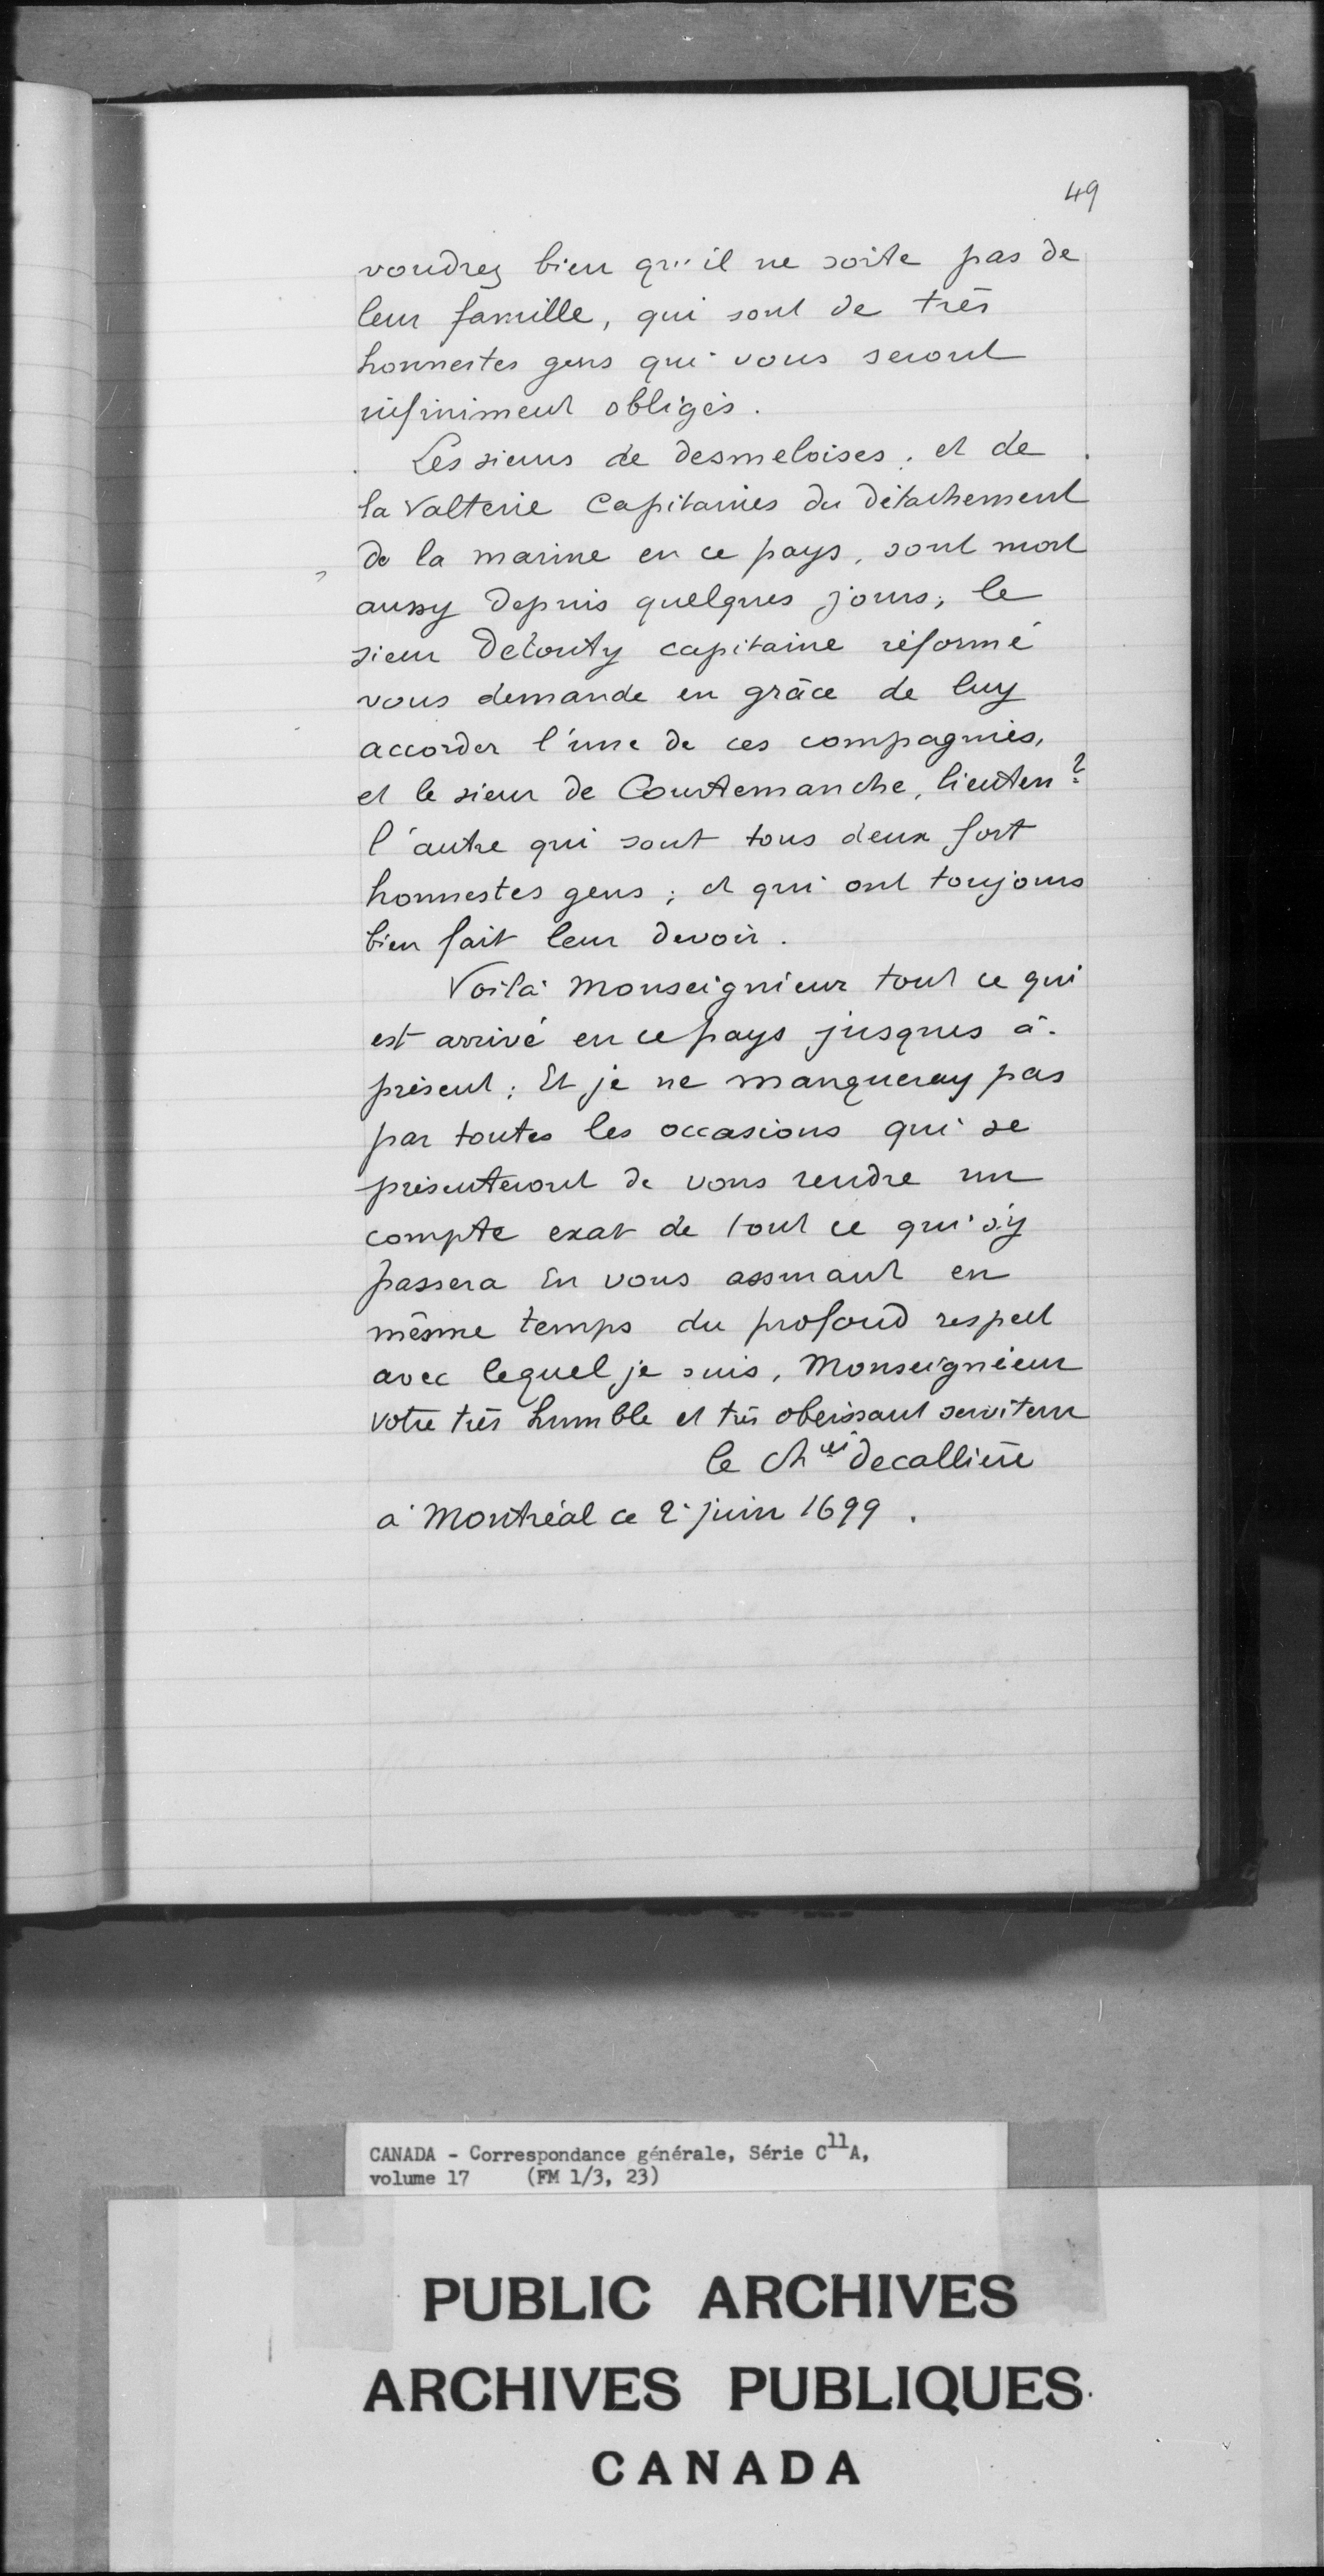 49
voudrez bien qu'il ne sorte pas de
leur famille, qui sont de très
honnestes gens qui vous seront
infiniment obligés.
Les sieurs de desmeloises, et de
la Valterie Capitaines du détachement
de la marine en ce pays, sont mort
aussy depuis quelques jours, le
sieur Delouty capitaine réformé
vous demande en grâce de luy
accorder l'une de ces compagnies,
et le sieur de Courtemanche, lieuten?
l'autre qui sont tous deux fort
honnestes gens; et qui ont toujours
bien fait leur devoir.
Voilà Monseignieur tout ce qui
est arrivé en ce pays jusques à
présent; Et je ne manqueray pas
par toutes les occasions qui se
présenteront de vous rendre un
compte exat de tout ce qui s'y
passera En vous assurant en
mesme temps du profond respect
avec lequel je suis, Monseignieur
votre très humble et très obeissant serviteur
le cher decallière
à Montréal ce 2 juin 1699.
CANADA - Correspondance générale, Série C11A,
volume 17 (FM 1/3, 23)
PUBLIC ARCHIVES
ARCHIVES PUBLIQUES
CANADA